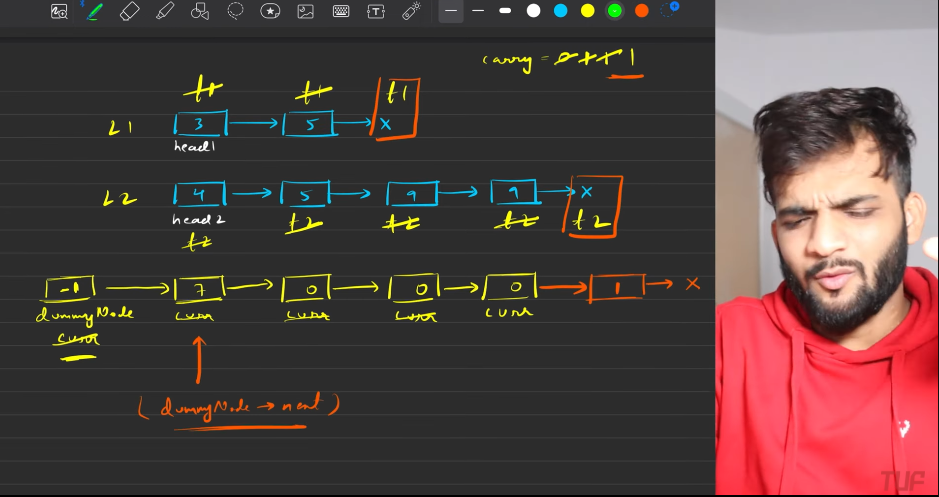 carry = 0 1 1 1
t1 t1 t1
L1 3 5 x
head1
L2 4 5 9 9 x
head2 t2 t2 t2 t2
t2
-1 7 0 0 0 1 x
dummyNode curr curr curr curr
curr
(dummyNode → next)
TUF